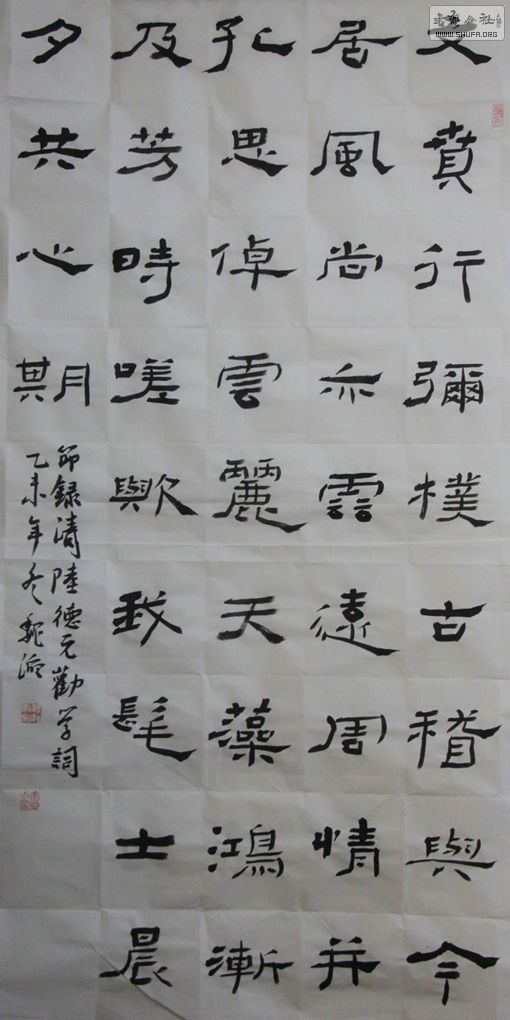 文賁行彌樸古稽與今
居風尚亦雲遠周情并
孔思倬雲麗天藻鴻漸
及芳時嗟歟我髦士晨
夕共心期
節錄清陸德元勸学詞
乙未年冬魏
WWW.SHUFA.ORG